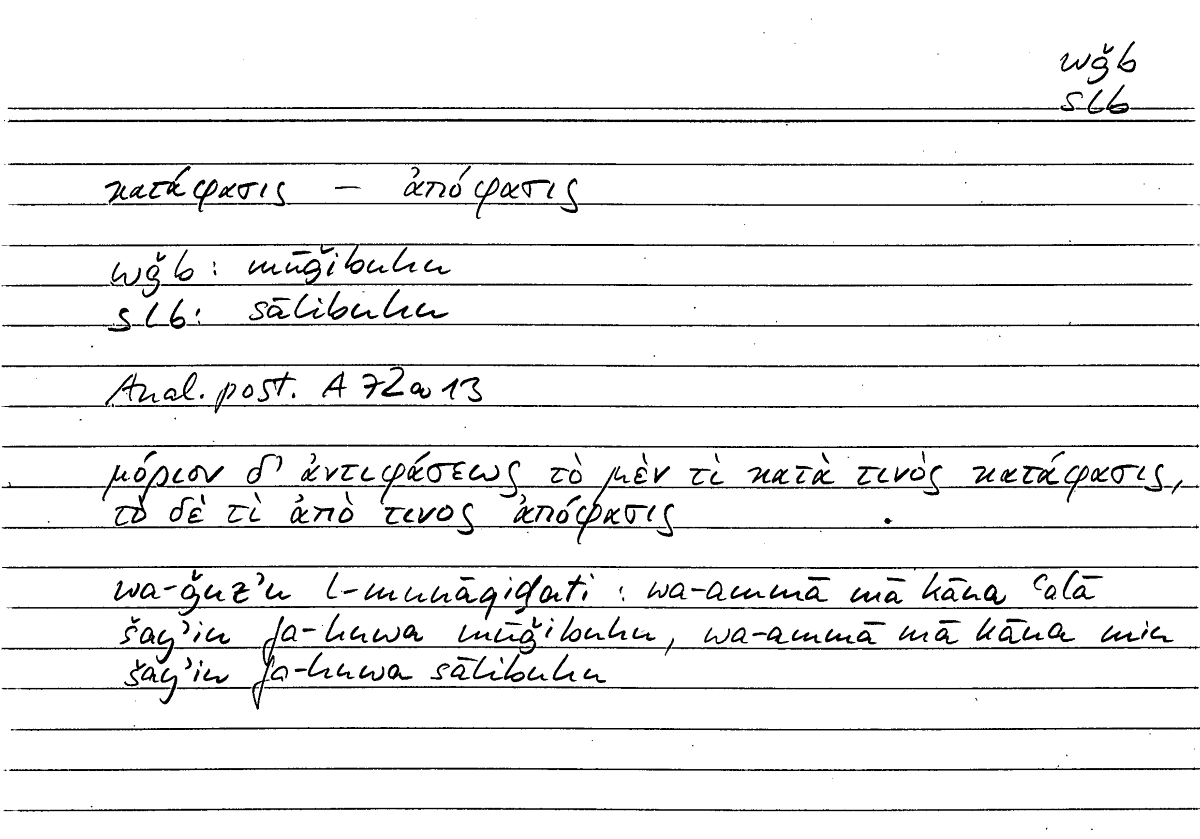 wǧb
slb
κατάφασις – ἀπόφασις
wǧb: mūǧibuhu
slb: sālibuhu
Anal. post. A 72a13
μόριον δ' ἀντιφάσεως τὸ μὲν τὶ κατὰ τινὸς κατάφασις,
τὸ δὲ τὶ ἀπὸ τινος ἀπόφασις
wa-ǧuz'u l-munāqiḍati : wa-ammā mā kāna ʿalā
šay'in fa-huwa mūǧibuhu, wa-ammā mā kāna min
šay'in fa-huwa sālibuhu